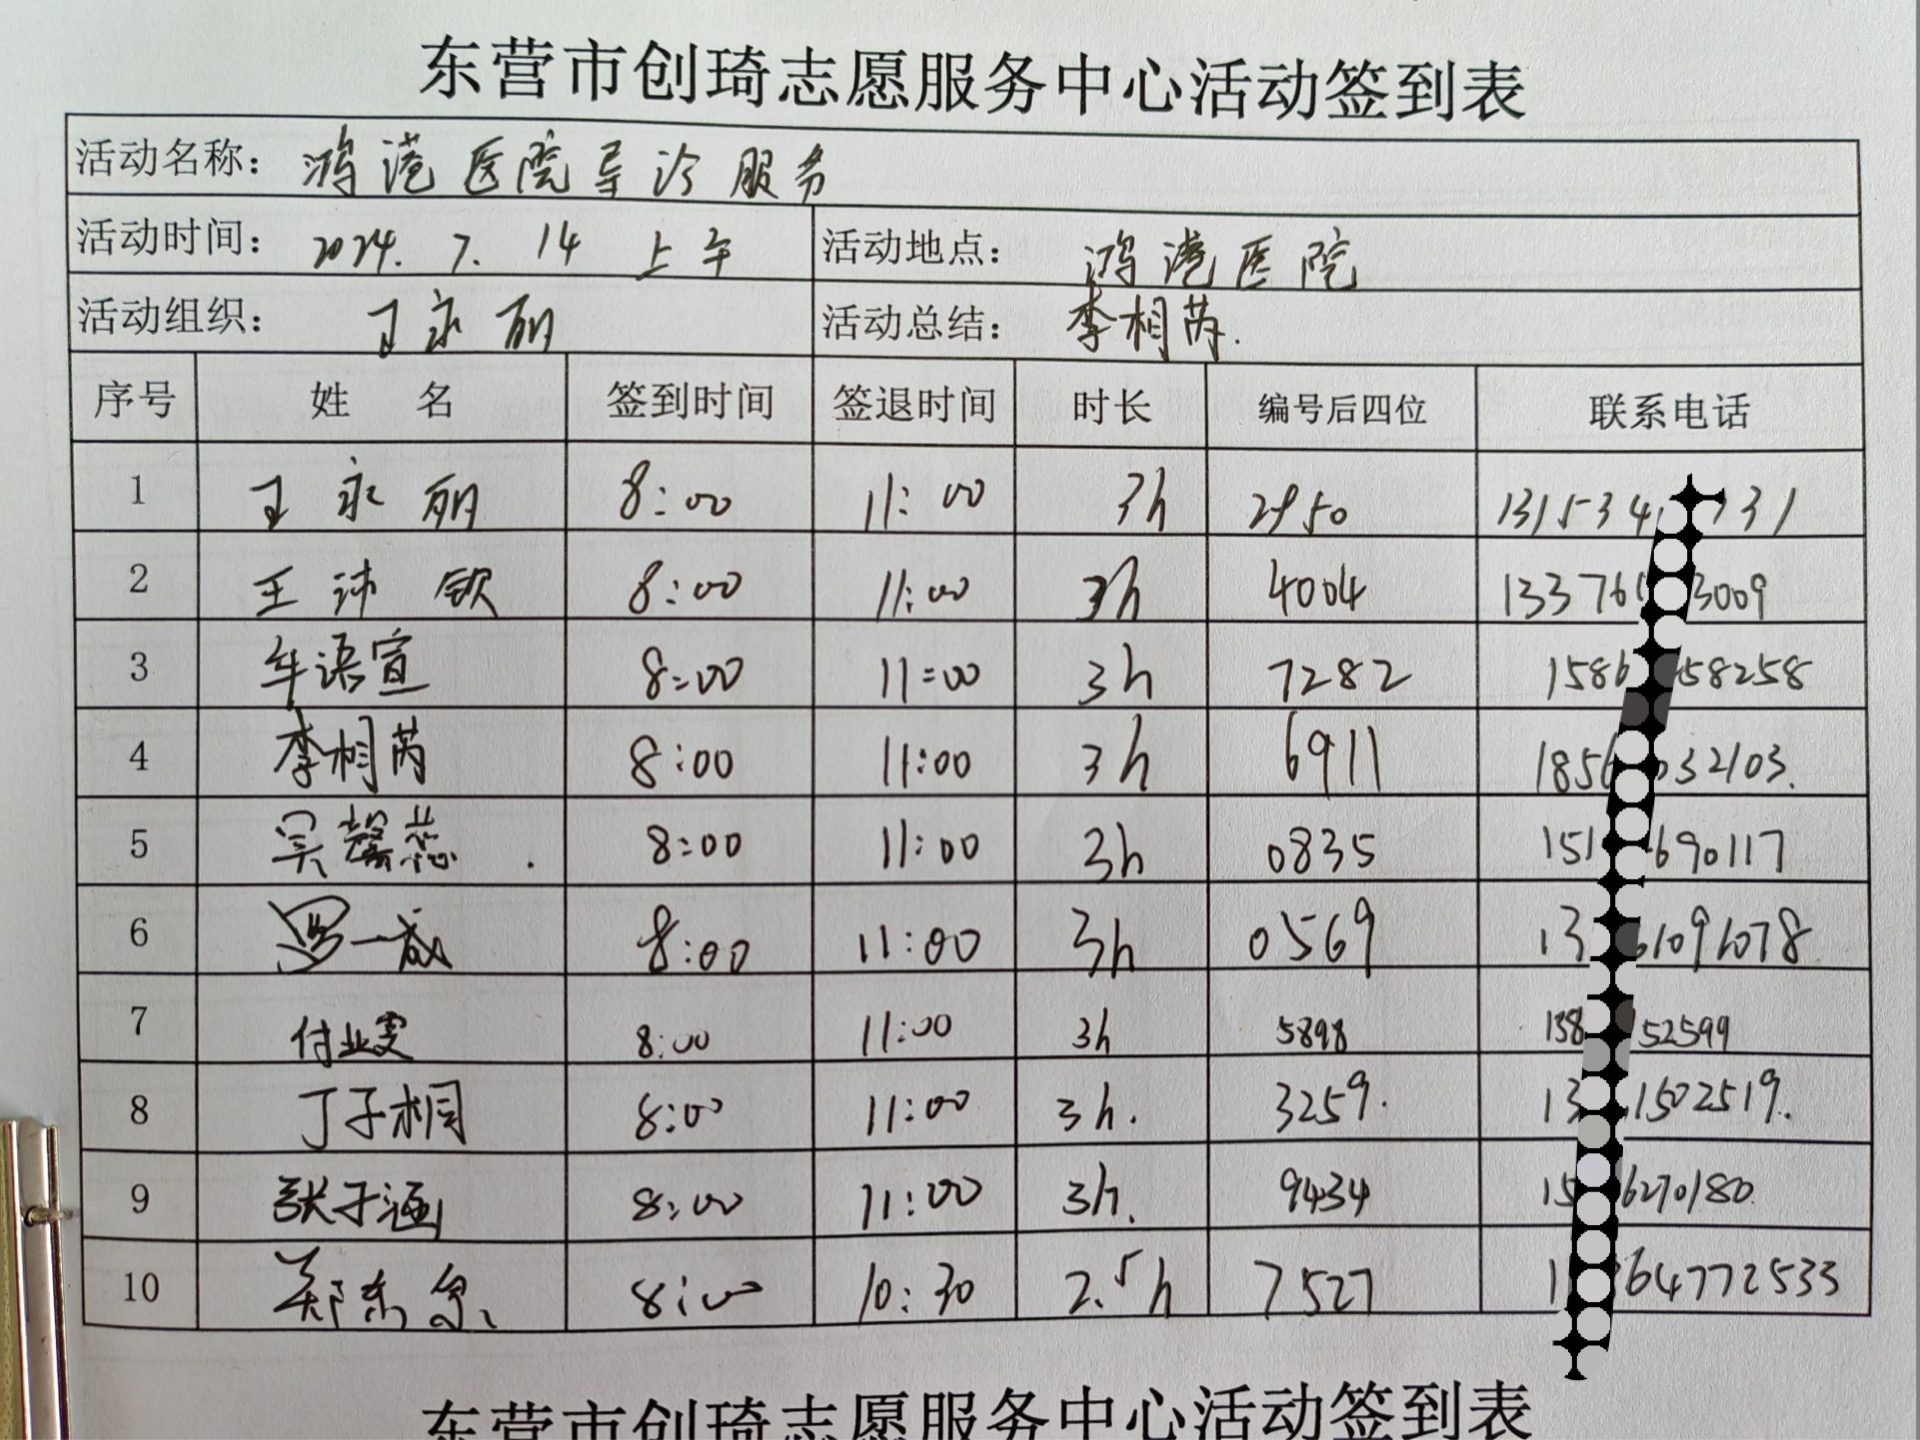 东营市创琦志愿服务中心活动签到表
活动名称： 鸿港医院导诊服务
活动时间： 2024. 7. 14 上午 活动地点： 鸿港医院
活动组织： 王永丽 活动总结： 李相芮.
序号 姓 名 签到时间 签退时间 时长 编号后四位 联系电话
1 王永丽 8:00 11:00 3h 2950 131534 31
2 王沛钦 8:00 11:00 3h 4004 13376 3009
3 车语宣 8:00 11:00 3h 7282 1586 58258
4 李相芮 8:00 11:00 3h 6911 185 32103.
5 吴馨蕊 8:00 11:00 3h 0835 151 690117
6 一宸 8:00 11:00 3h 0569 13 1091078
7 付业雯 8:00 11:00 3h 5898 138 52599
8 丁子桐 8:00 11:00 3h. 3259. 13 1502519.
9 张子涵 8:00 11:00 3h. 9434 15 6270180.
10 郑东 8:00 10:30 2.5h 7527 1 64772533
东营市创琦志愿服务中心活动签到表